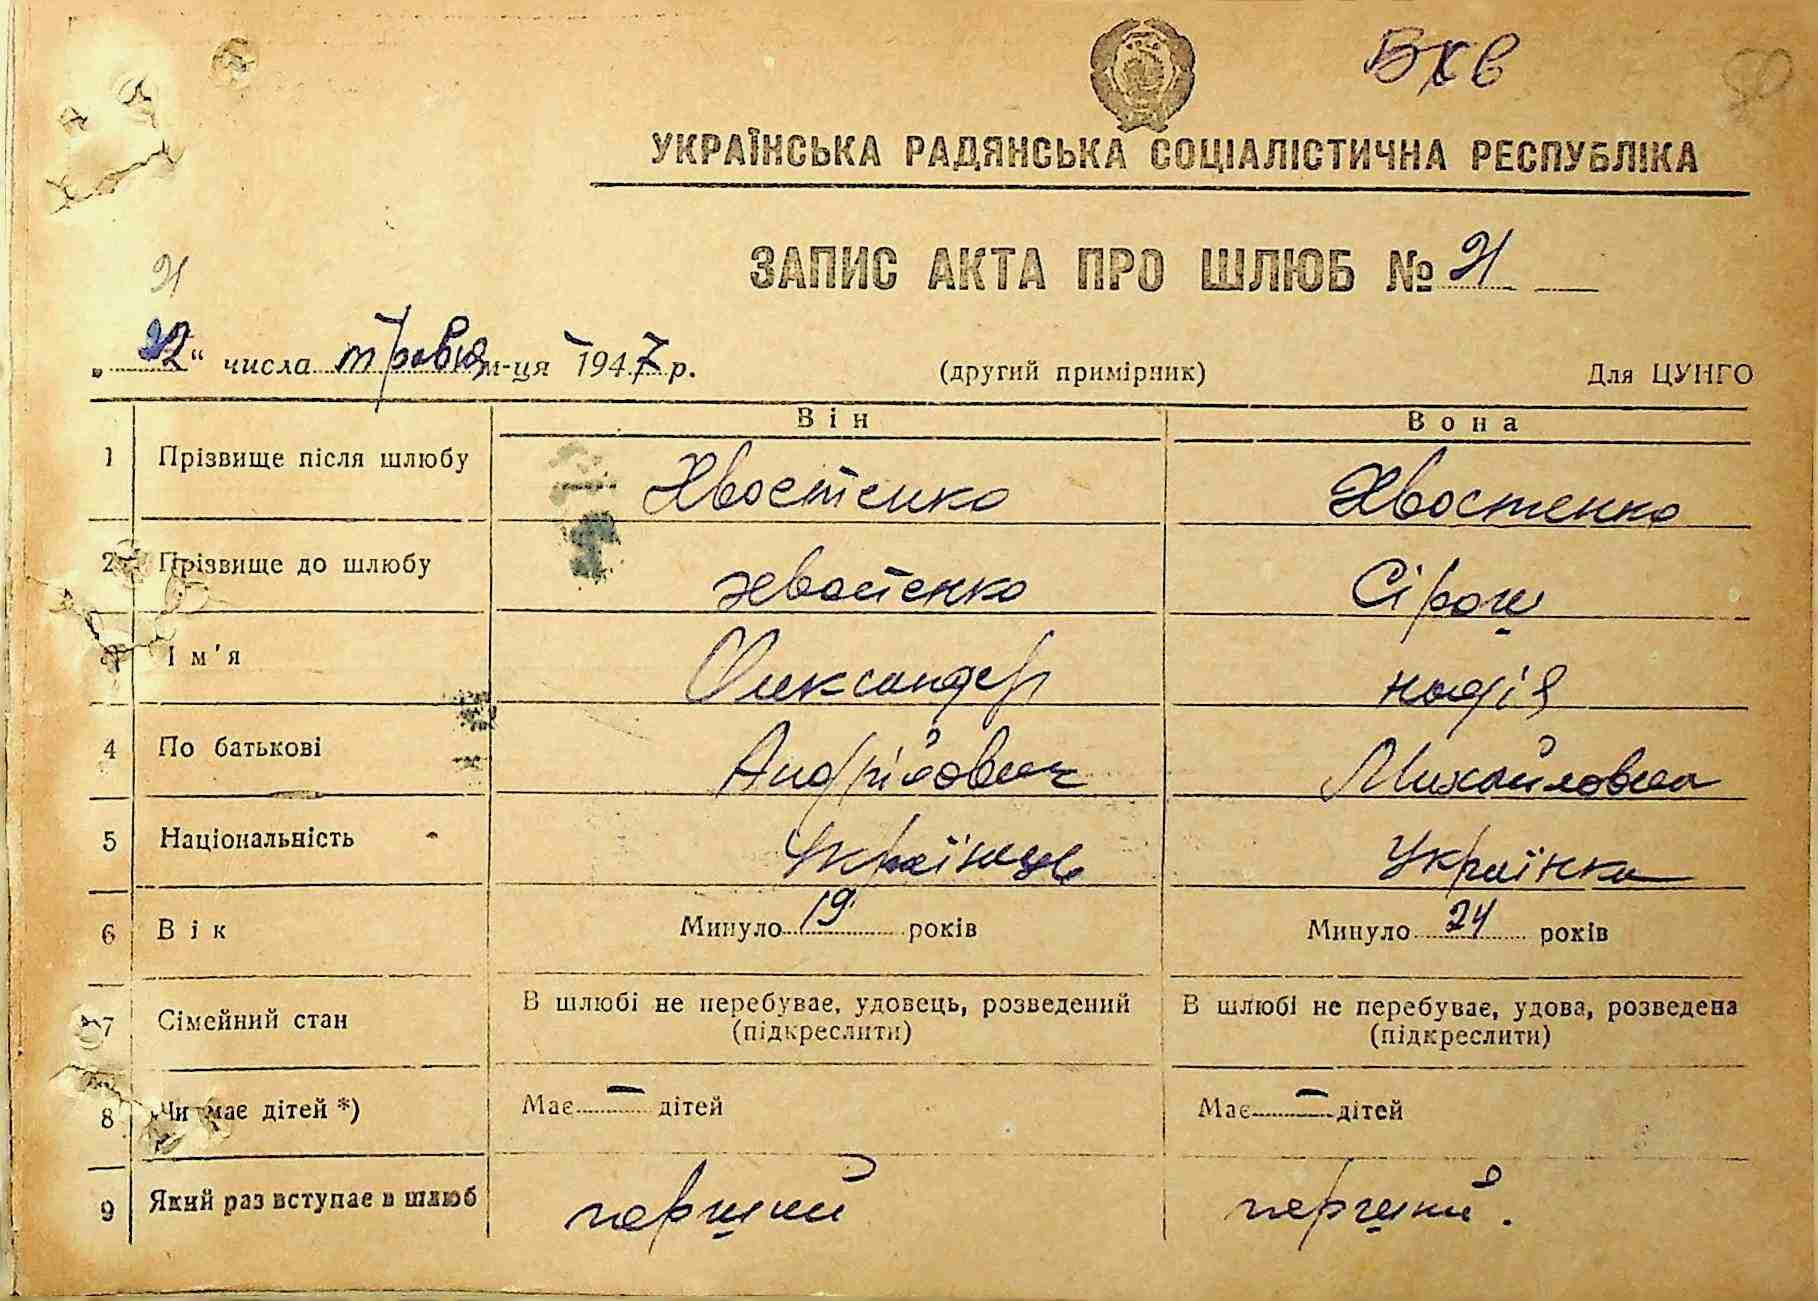 БХВ
50
УКРАЇНСЬКА РАДЯНСЬКА СОЦІАЛІСТИЧНА РЕСПУБЛІКА
ЗАПИС АКТА ПРО ШЛЮБ № 21
21
„22“ числа травня м-ця 1947 р. (другий примірник) Для ЦУНГО
Він Вона
1 Прізвище після шлюбу Хвостенко Хвостенко
2 Прізвище до шлюбу хвостенко Сірош
3 Ім'я Олександер надія
4 По батькові Андрійович Михайловна
5 Національність Українець Українка
6 Вік Минуло 19 років Минуло 24 років
7 Сімейний стан В шлюбі не перебуває, удовець, розведений (підкреслити) В шлюбі не перебуває, удова, розведена (підкреслити)
8 Чи має дітей *) Має — дітей Має — дітей
9 Який раз вступає в шлюб перший перший.